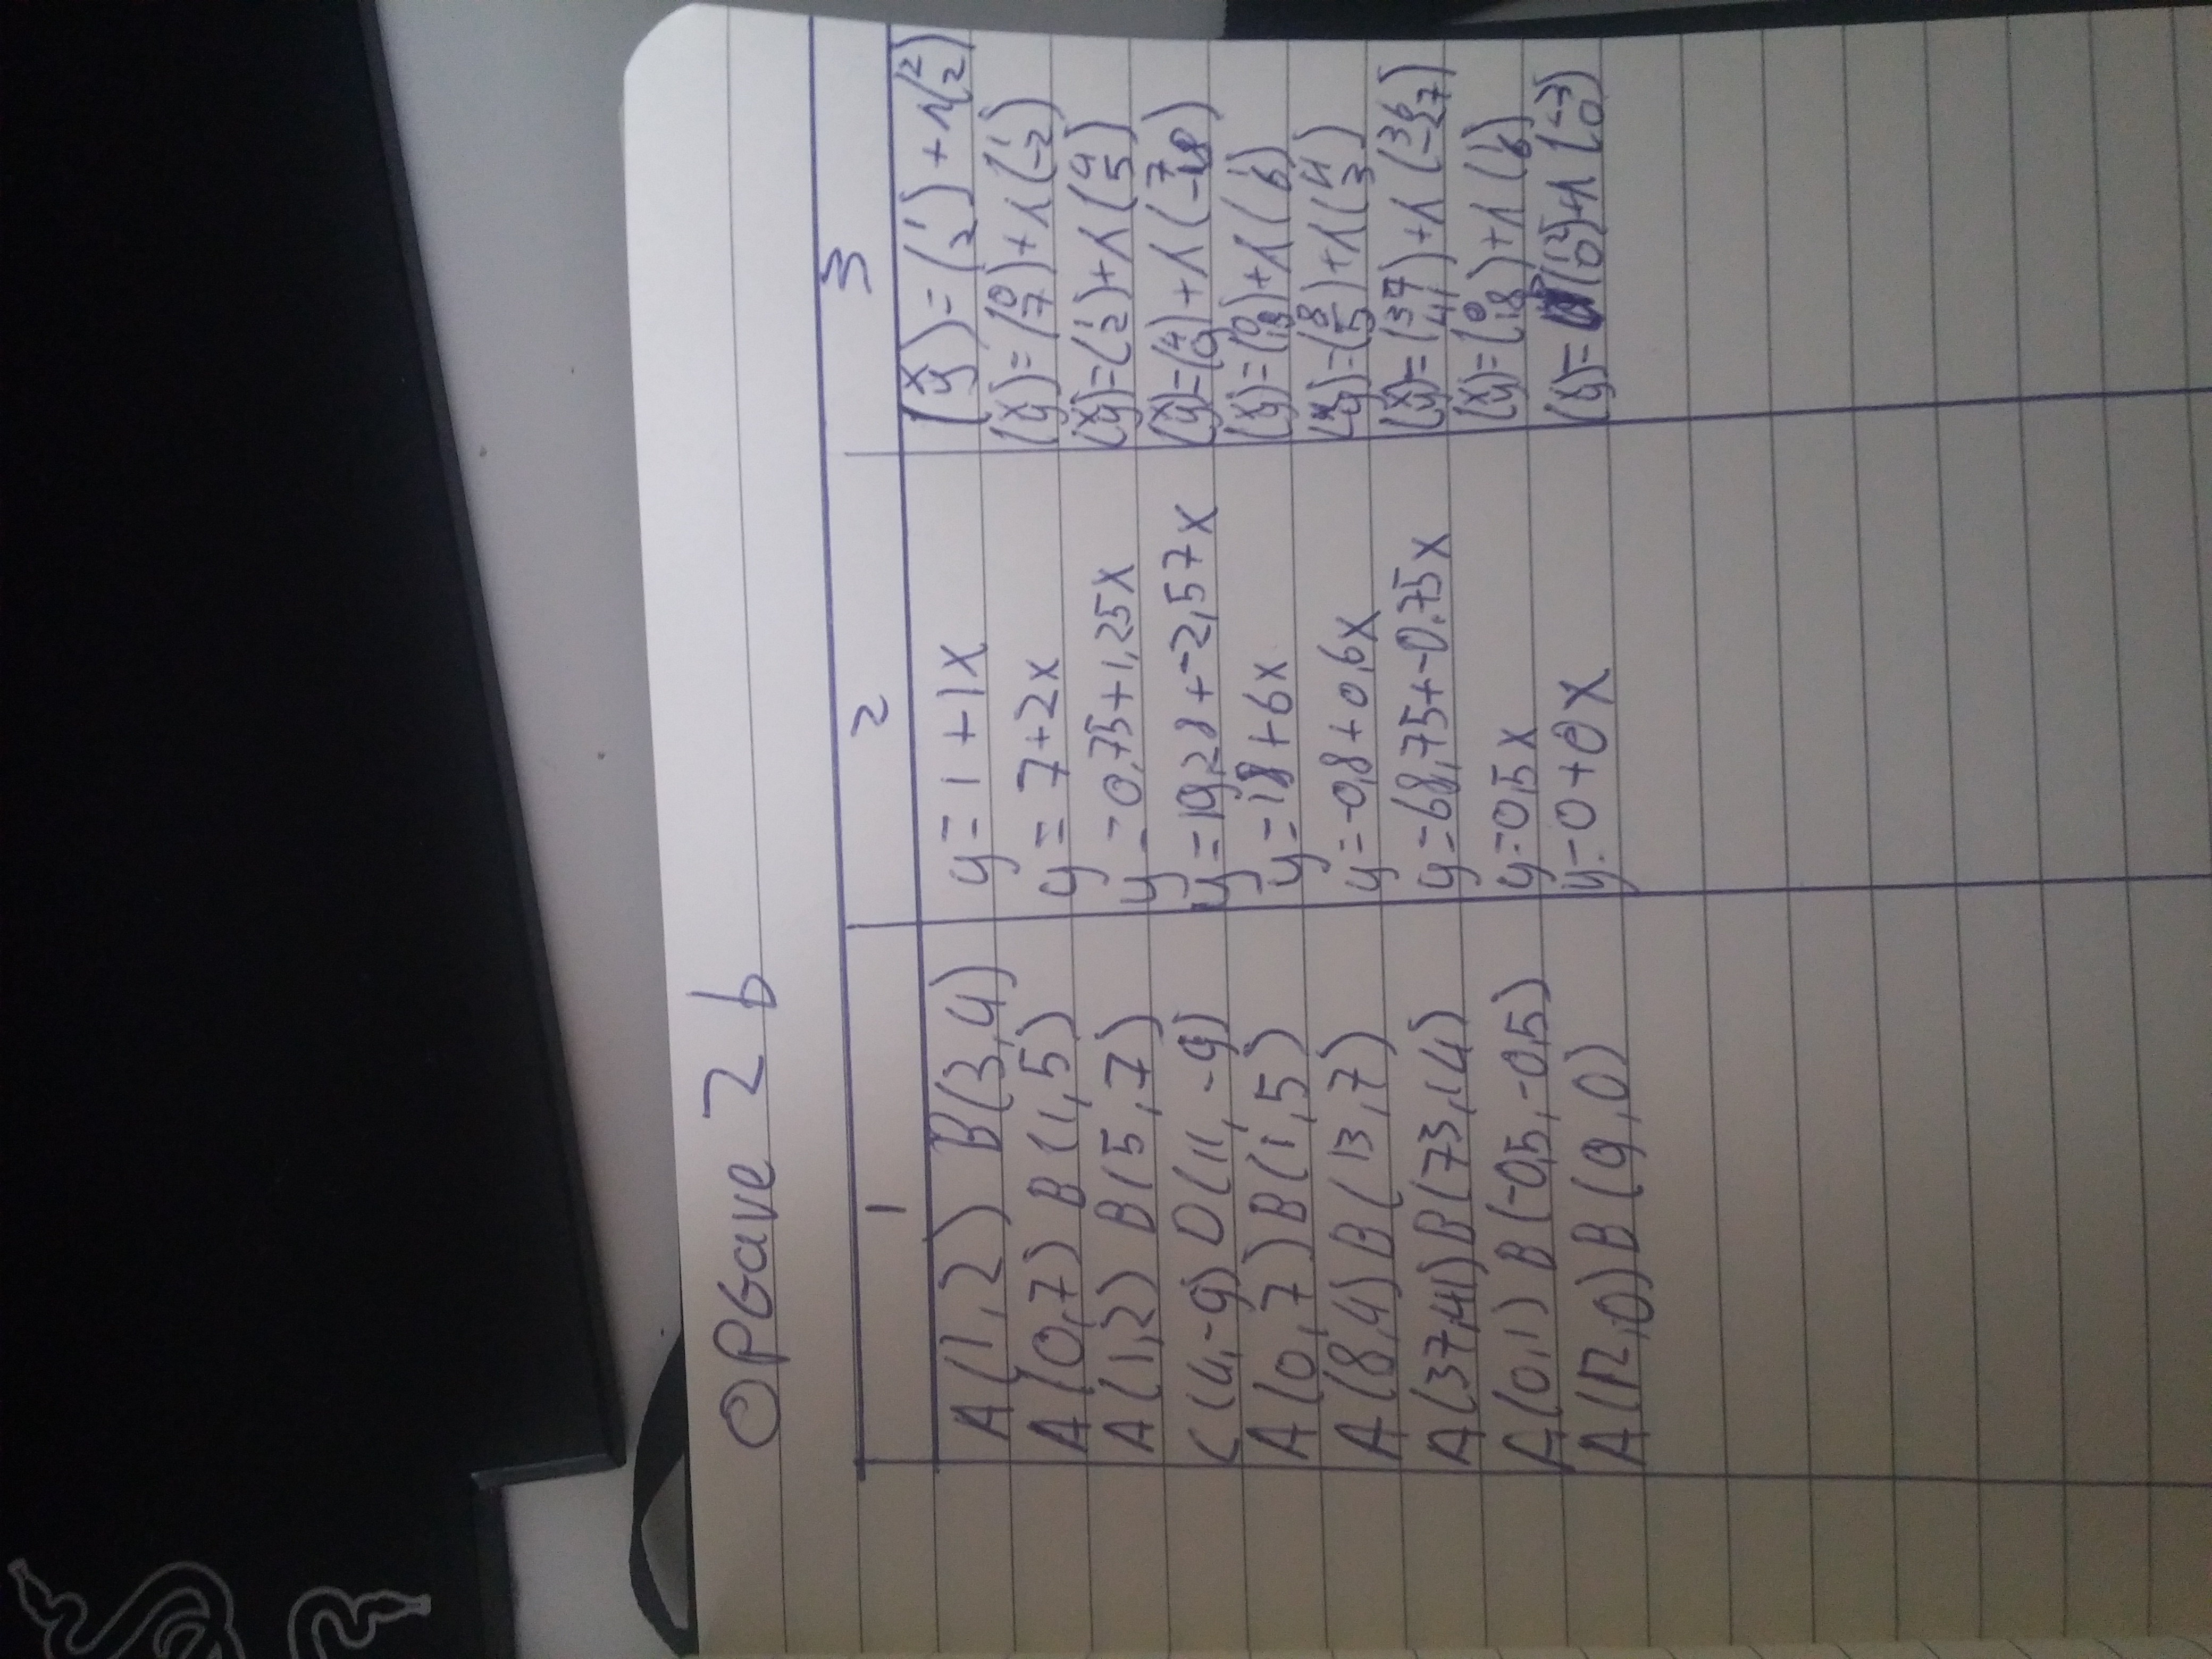 OPGave 2 b
1 2 3
A(1,2) B(3,4) y=1+1x (x y)=(1 2)+λ(2 2)
A(0,7) B(1,5) y=7+2x (x y)=(0 7)+λ(1 -2)
A(1,2) B(5,7) y=0,75+1,25x (x y)=(1 2)+λ(4 5)
C(4,-9) D(11,-9) y=19,28+-2,57x (x y)=(4 9)+λ(7 -18)
A(0,7) B(1,5) y=18+6x (x y)=(0 18)+λ(1 6)
A(8,4) B(13,7) y=-0,8+0,6x (x y)=(8 5)+λ( 3)
A(37,41) B(73,14) y=68,75+-0,75x (x y)=(37 41)+λ(36 -27)
A(0,1) B(-0,5,-0,5) y=0,5x (x y)=(0 18)+λ(1 6)
A(12,0) B(9,0) y=0+0x (x y)=(12 0)+λ(-3 0)